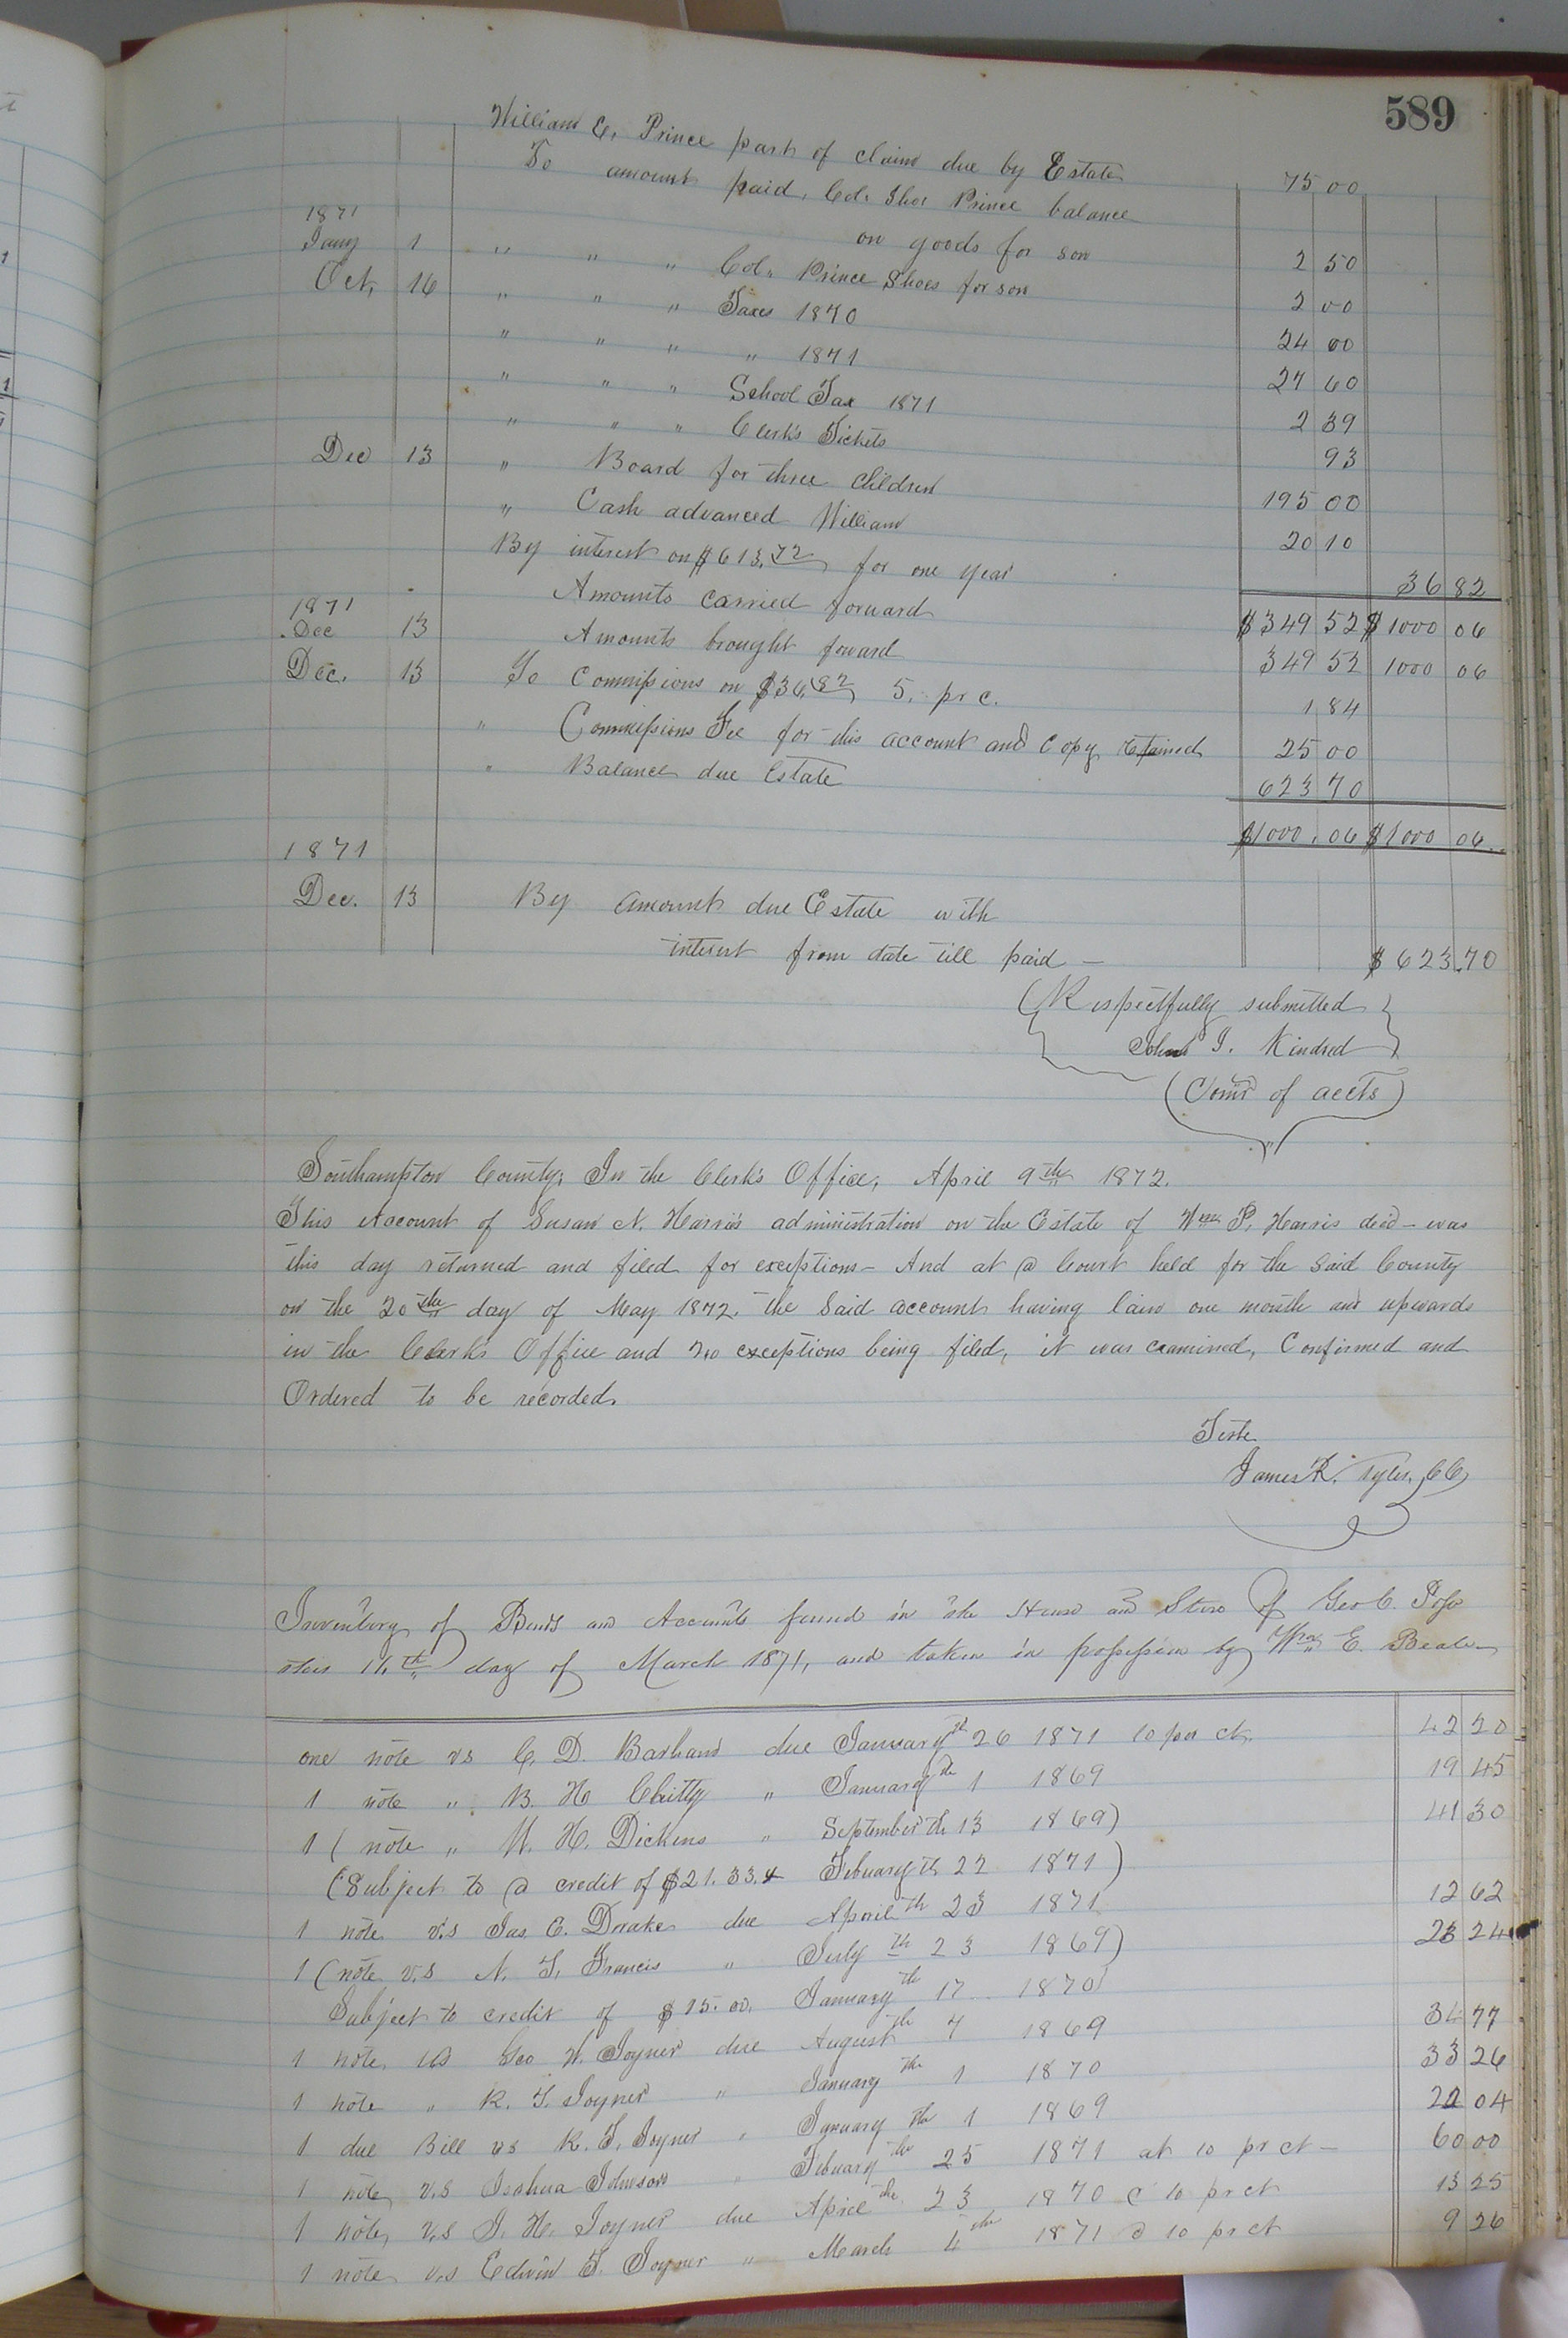 589
William E. Prince part of claim due by Estate 75 00
To amount paid Col. Thos Prince balance
on goods for son 2 50
1871
Jany 1 " " " Col. Prince Shoes for son 2 00
Oct. 16 " " " Taxes 1870 24 00
" " " " 1871 27 60
" " " School Tax 1871 2 39
" " " Clerk's Tickets 93
Dec 13 " Board for three children 195 00
" Cash advanced William 20 10
By interest on $613.72 for one year 36 82
Amounts carried forward $349 52 $1000 06
1871
Dec 13 Amounts brought forward 349 52 1000 06
Dec. 13 To Commissions on $36.82 5. pr c. 1 84
" Commissions Fee for this account and Copy retained 25 00
" Balance due Estate 623 70
$1000.06 $1000 06
1871
Dec. 13 By amount due Estate with
interest from date till paid — $623.70
Respectfully submitted
John J. Kindred
(Comr of accts)
Southampton County; In the Clerk's Office, April 9th 1872.
This Account of Susan N. Harris's administration on the Estate of Wm P. Harris decd — was
this day returned and filed for exceptions — And at a Court held for the said County
on the 20th day of May 1872. the said account having lain one month and upwards
in the Clerk's Office and no exceptions being filed, it was examined, Confirmed and
Ordered to be recorded.
Teste
James R. Tyler, CC
Inventory of Bonds and Accounts found in the House and Store of Geo C. Pope
this 11th day of March 1871, and taken in possession by Wm E. Beale
one note vs C. D. Barham due January th 26 1871 10 per ct. 42 20
1 note " B. H Chitty " January th 1 1869 19 45
1 (note " W. H. Dickens " September th 13 1869) 41 30
(Subject to a credit of $21.33. Febuary th 22 1871)
1 note v.s Jas E. Drake due April th 23 1871 12 62
1 (note v.s N. T. Francis " July th 23 1869) 23 24
Subject to credit of $15.00. January th 17 1870)
1 note vs Geo W. Joyner due August th 7 1869 34 77
1 note " R. T. Joyner " January th 1 1870 33 26
1 due Bill vs R. T. Joyner " January th 1 1869 22 04
1 note v.s Joshua Johnson " Febuary th 25 1871 at 10 pr ct — 60 00
1 note v.s J. H. Joyner due April th 23 1870 @ 10 pr ct 13 25
1 note v.s Edwin T. Joyner " March 4th 1871 @ 10 pr ct 9 26